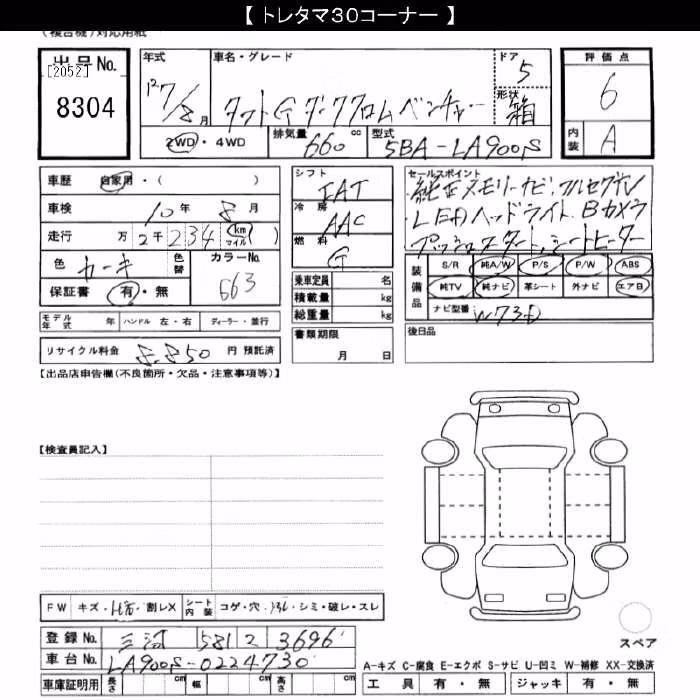 【 トレタマ30コーナー 】
(複合機)対応用紙
出品No.
[2052]
8304
年式
P27/8月
車名・グレード
タフトGダーククロムベンチャー
ドア
5
形状
箱
評価点
6
内装
A
2WD・4WD
排気量
660cc
型式
5BA-LA900S
車歴 自家用・( )
車検 10年8月
走行 万2千234 (km マイル)
色 カーキ
色替
カラーNo.
663
保証書 有・無
シフト
IAT
冷房
AAC
燃料
G
乗車定員 名
積載量 kg
総重量 kg
セールスポイント
純正メモリーナビ.フルセグTV
LEDヘッドライト.Bカメラ
プッシュスタート,シートヒーター
装備品
S/R 純A/W P/S P/W ABS
純TV 純ナビ 革シート 外ナビ エアB
ナビ型番 W73D
モデル年式 年 ハンドル 左・右 ディーラー・並行
書類期限
月 日
後日品
リサイクル料金 8,850 円 預託済
【出品店申告欄(不良箇所・欠品・注意事項等)】
【検査員記入】
FW キズ・ﾋﾋﾞ・割レX
シート内装 コゲ・穴・ｺｽﾚ・シミ・破レ・スレ
登録No. 三河 581 2 3696
車台No. LA900S-0224730
車庫証明用 長さ cm 幅 cm 高さ cm
スペア
A-キズ C-腐食 E-エクボ S-サビ U-凹ミ W-補修 XX-交換済
工具 有・無 ジャッキ 有・無